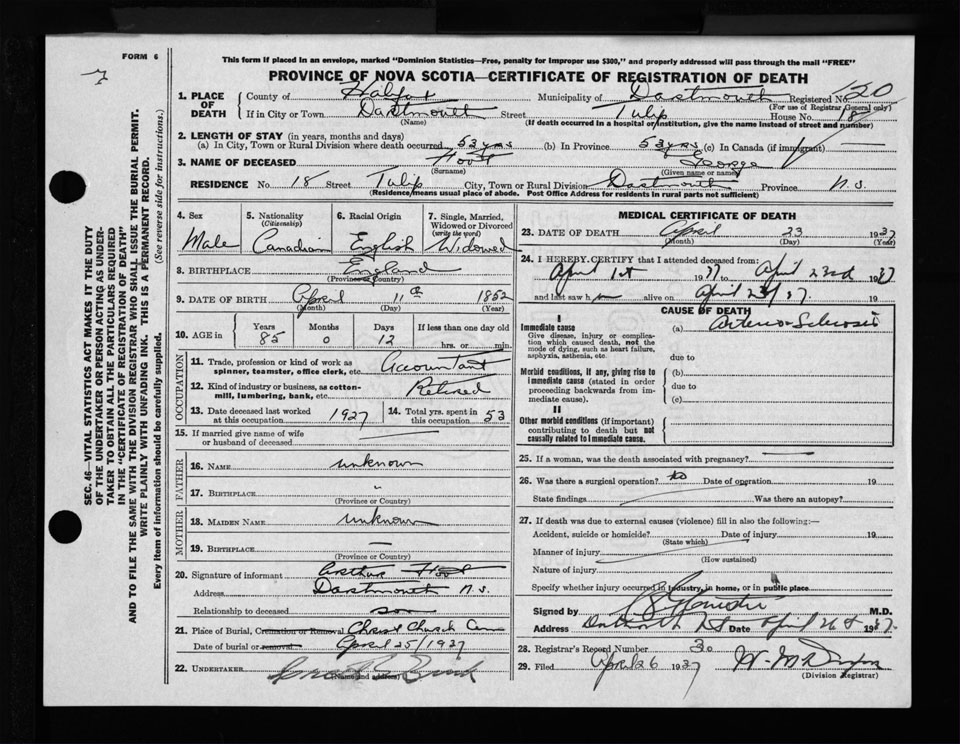 FORM 6
This form if placed in an envelope, marked "Dominion Statistics—Free, penalty for improper use $300," and properly addressed will pass through the mail "FREE"
PROVINCE OF NOVA SCOTIA—CERTIFICATE OF REGISTRATION OF DEATH
SEC. 46—VITAL STATISTICS ACT MAKES IT THE DUTY
OF THE UNDERTAKER OR PERSON ACTING AS UNDER-
TAKER TO OBTAIN ALL THE PARTICULARS REQUIRED
IN THE "CERTIFICATE OF REGISTRATION OF DEATH"
AND TO FILE THE SAME WITH THE DIVISION REGISTRAR WHO SHALL ISSUE THE BURIAL PERMIT.
WRITE PLAINLY WITH UNFADING INK. THIS IS A PERMANENT RECORD.
Every item of information should be carefully supplied. (See reverse side for instructions.)
1. PLACE OF DEATH County of Halifax Municipality of Dartmouth Registered No. 520
(For use of Registrar General only)
If in City or Town Dartmouth Street Tulip House No. 18
(Name) (If death occurred in a hospital or institution, give the name instead of street and number)
2. LENGTH OF STAY (in years, months and days)
(a) In City, Town or Rural Division where death occurred 53 yrs (b) In Province 53 yrs (c) In Canada (if immigrant)
3. NAME OF DECEASED George
(Surname) (Given name or names)
RESIDENCE No. 18 Street Tulip City, Town or Rural Division Dartmouth Province N.S.
(Residence means usual place of abode. Post Office Address for residents in rural parts not sufficient)
4. Sex Male
5. Nationality (Citizenship) Canadian
6. Racial Origin English
7. Single, Married, Widowed or Divorced (write the word) Widowed
8. BIRTHPLACE England
(Province or Country)
9. DATE OF BIRTH April 11th 1852
(Month) (Day) (Year)
10. AGE in Years 85 Months 0 Days 12 If less than one day old hrs. or min.
OCCUPATION
11. Trade, profession or kind of work as spinner, teamster, office clerk, etc. Accountant
12. Kind of industry or business, as cotton-mill, lumbering, bank, etc. Retired
13. Date deceased last worked at this occupation 1927
14. Total yrs. spent in this occupation 53
15. If married give name of wife or husband of deceased
FATHER
16. NAME unknown
17. BIRTHPLACE "
(Province or Country)
MOTHER
18. MAIDEN NAME unknown
19. BIRTHPLACE —
(Province or Country)
20. Signature of informant Arthur
Address Dartmouth N.S.
Relationship to deceased son
21. Place of Burial, Cremation or Removal Christ Church Cem
Date of burial or removal April 25/1937
22. UNDERTAKER
(Name and address)
MEDICAL CERTIFICATE OF DEATH
23. DATE OF DEATH April 23 1937
(Month) (Day) (Year)
24. I HEREBY CERTIFY that I attended deceased from:
April 1st 1937 to April 23rd 1937
and last saw h m alive on April 23/37. 19
CAUSE OF DEATH
I
Immediate cause (a) Arterio-Sclerosis
Give disease, injury or complica-
tion which caused death, not the
mode of dying, such as heart failure,
asphyxia, asthenia, etc.
due to
Morbid conditions, if any, giving rise to (b)
immediate cause (stated in order due to
proceeding backwards from im-
mediate cause). (c)
II
Other morbid conditions (if important)
contributing to death but not
causally related to immediate cause.
25. If a woman, was the death associated with pregnancy?
26. Was there a surgical operation? No Date of operation 19
State findings Was there an autopsy?
27. If death was due to external causes (violence) fill in also the following:—
Accident, suicide or homicide? Date of injury 19
(State which)
Manner of injury
(How sustained)
Nature of injury
Specify whether injury occurred in industry, in home, or in public place
Signed by M.D.
Address Date April 26 1937
28. Registrar's Record Number 30
29. Filed April 26 1937
(Division Registrar)